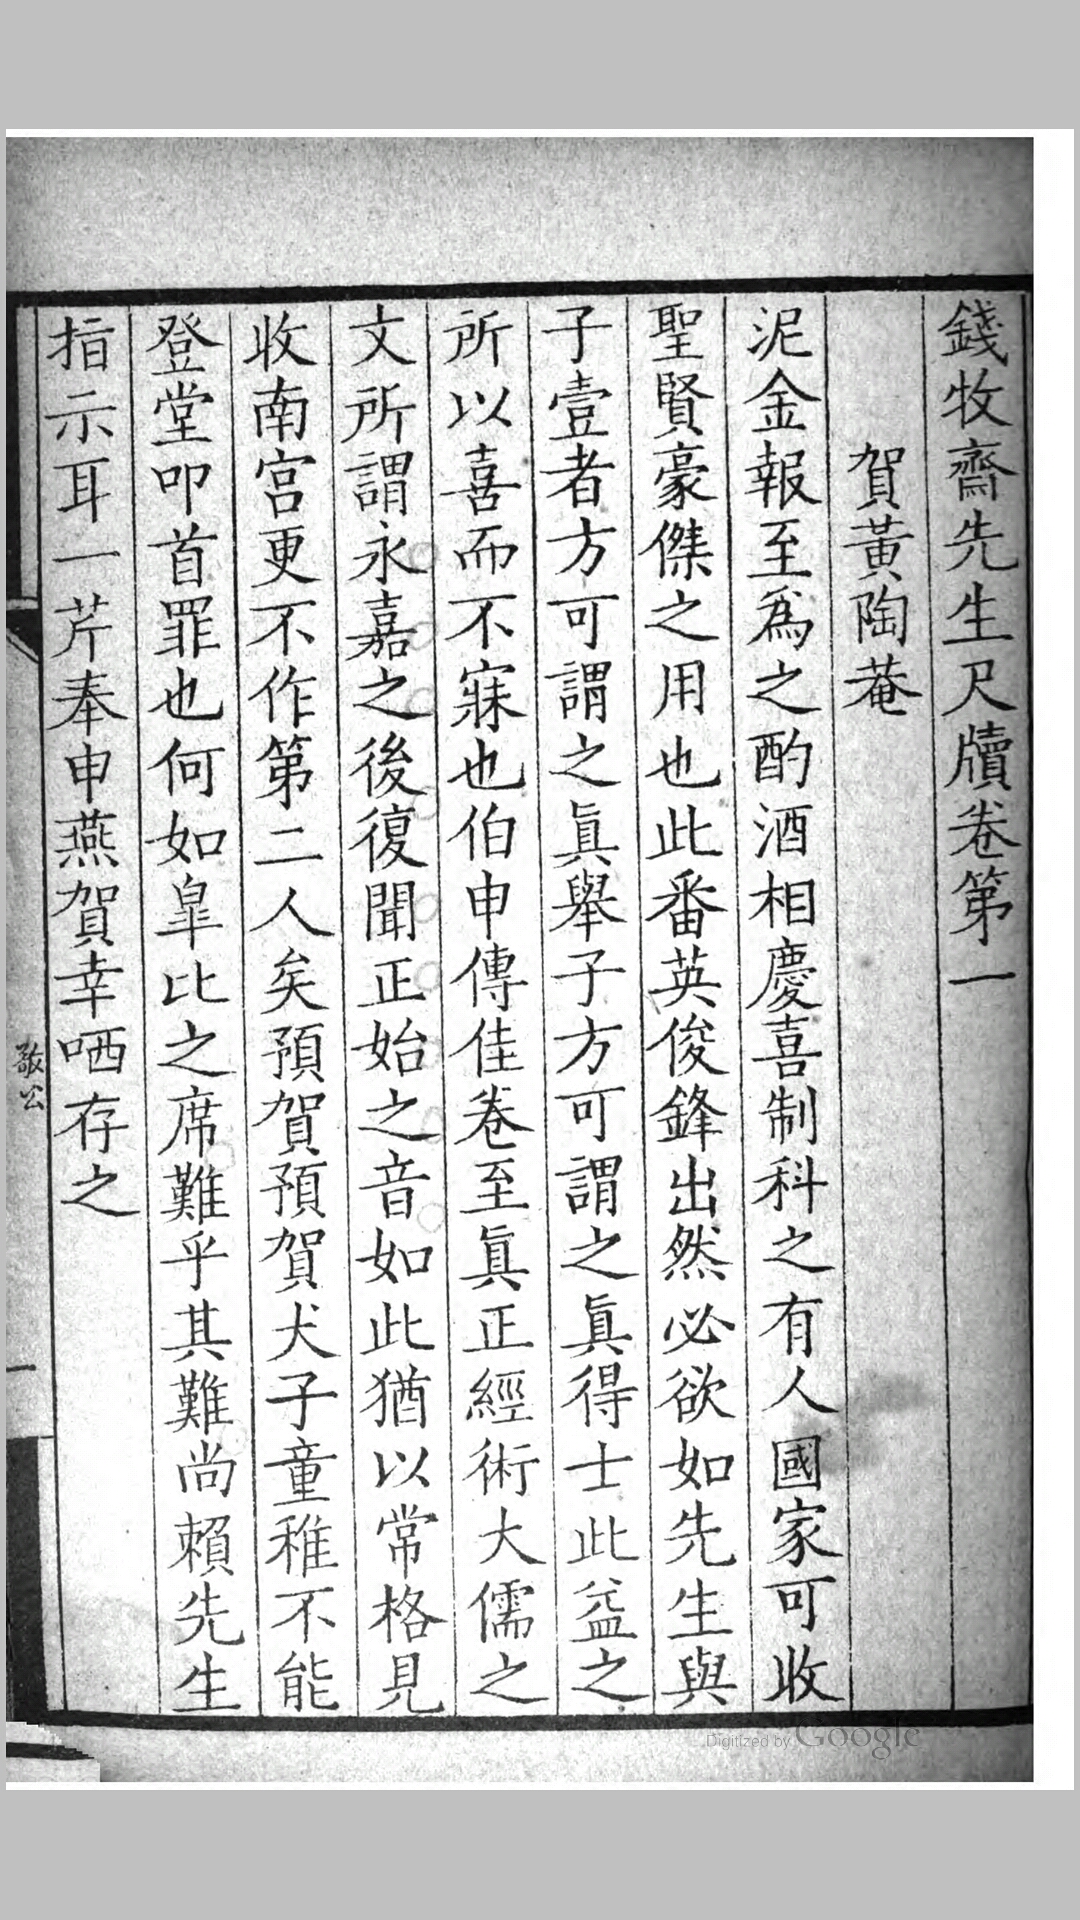 錢牧齋先生尺牘卷第一
賀黃陶菴
泥金報至爲之酌酒相慶喜制科之有人國家可收
聖賢豪傑之用也此番英俊鋒出然必欲如先生與
子壹者方可謂之眞舉子方可謂之眞得士此益之
所以喜而不寐也伯申傳佳卷至眞正經術大儒之
文所謂永嘉之後復聞正始之音如此猶以常格見
收南宮更不作第二人矣預賀預賀犬子童稚不能
登堂叩首罪也何如臯比之席難乎其難尚賴先生
指示耳一芹奉申燕賀幸哂存之
敬公
一
Digitized by Google